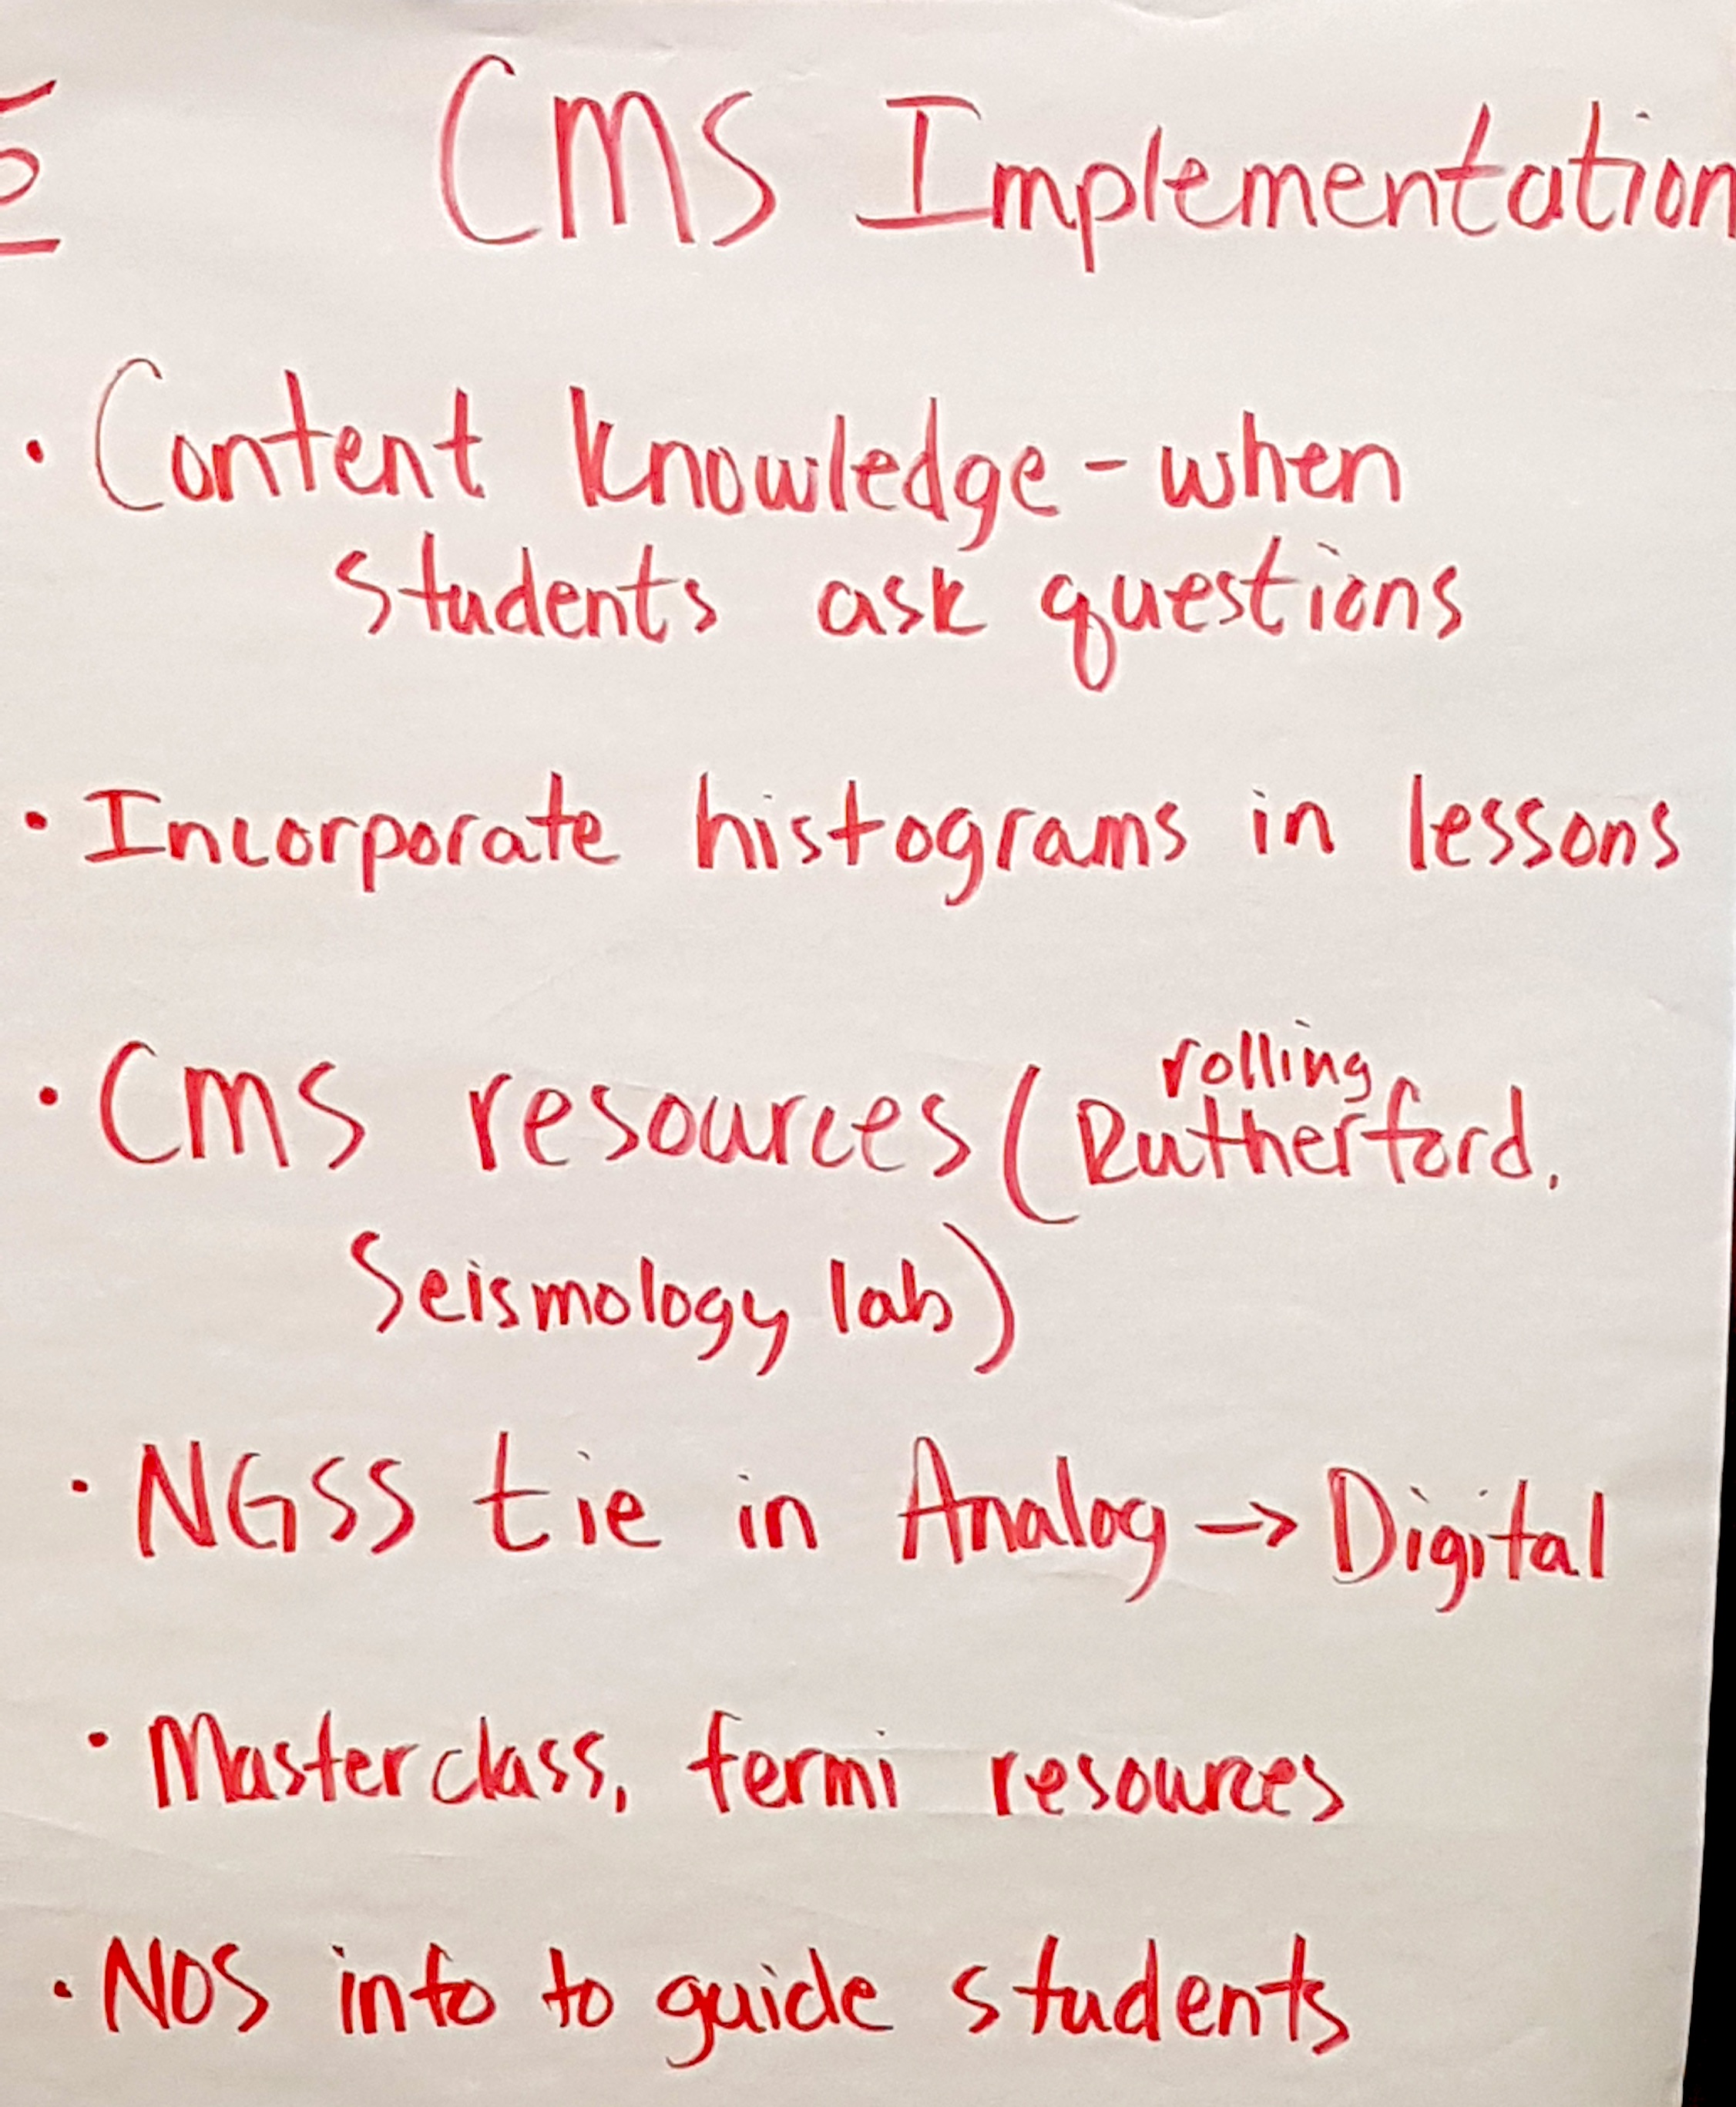 CMS Implementation
• Content knowledge - when
students ask questions
• Incorporate histograms in lessons
• CMS resources (rolling Rutherford,
Seismology lab)
• NGSS tie in Analog → Digital
• Masterclass, fermi resources
• NOS info to guide students